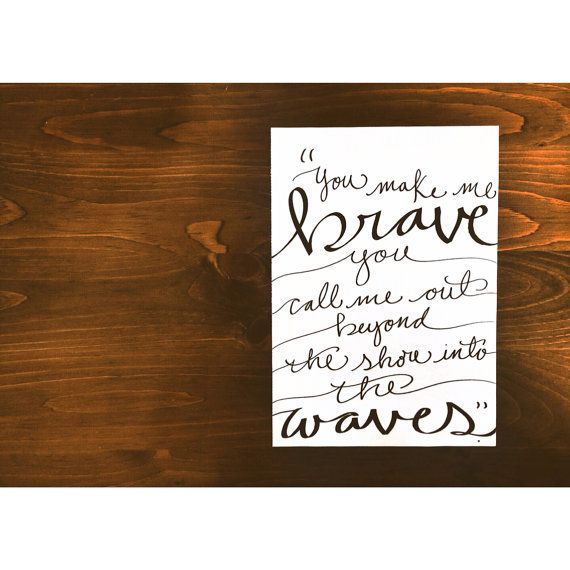 "You make me
brave
you
call me out
beyond
the shore into
the
waves."